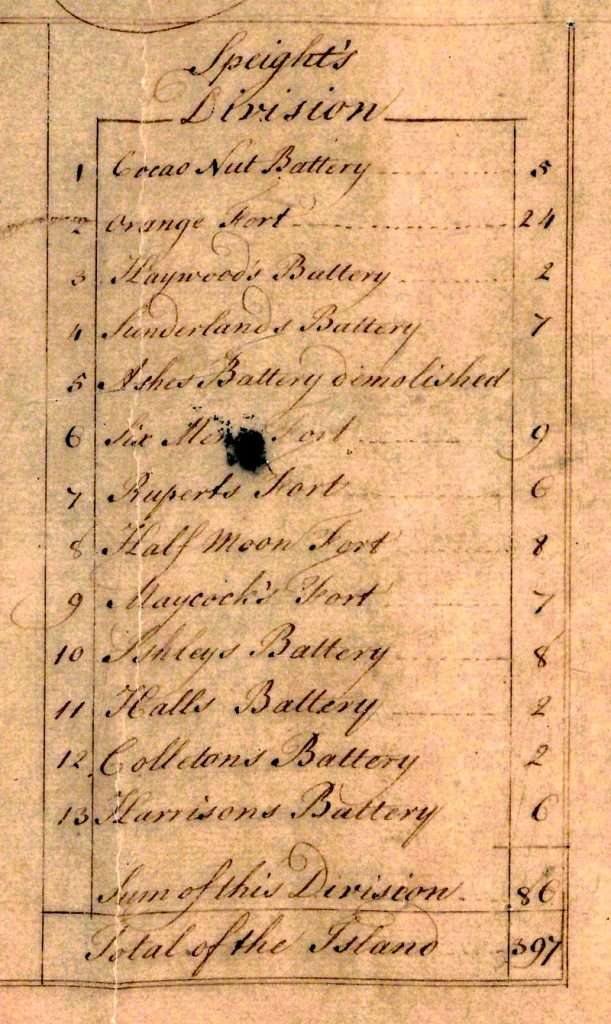 Speight's
Division
1 Cocao Nut Battery 5
2 Orange Fort 24
3 Haywood's Battery 2
4 Sunderlands Battery 7
5 Ashes Battery demolished
6 Six Fort 9
7 Ruperts Fort 6
8 Half Moon Fort 8
9 Maycock's Fort 7
10 Ashleys Battery 8
11 Halls Battery 2
12 Colletons Battery 2
13 Harrisons Battery 6
Sum of this Division 86
Total of the Island 397